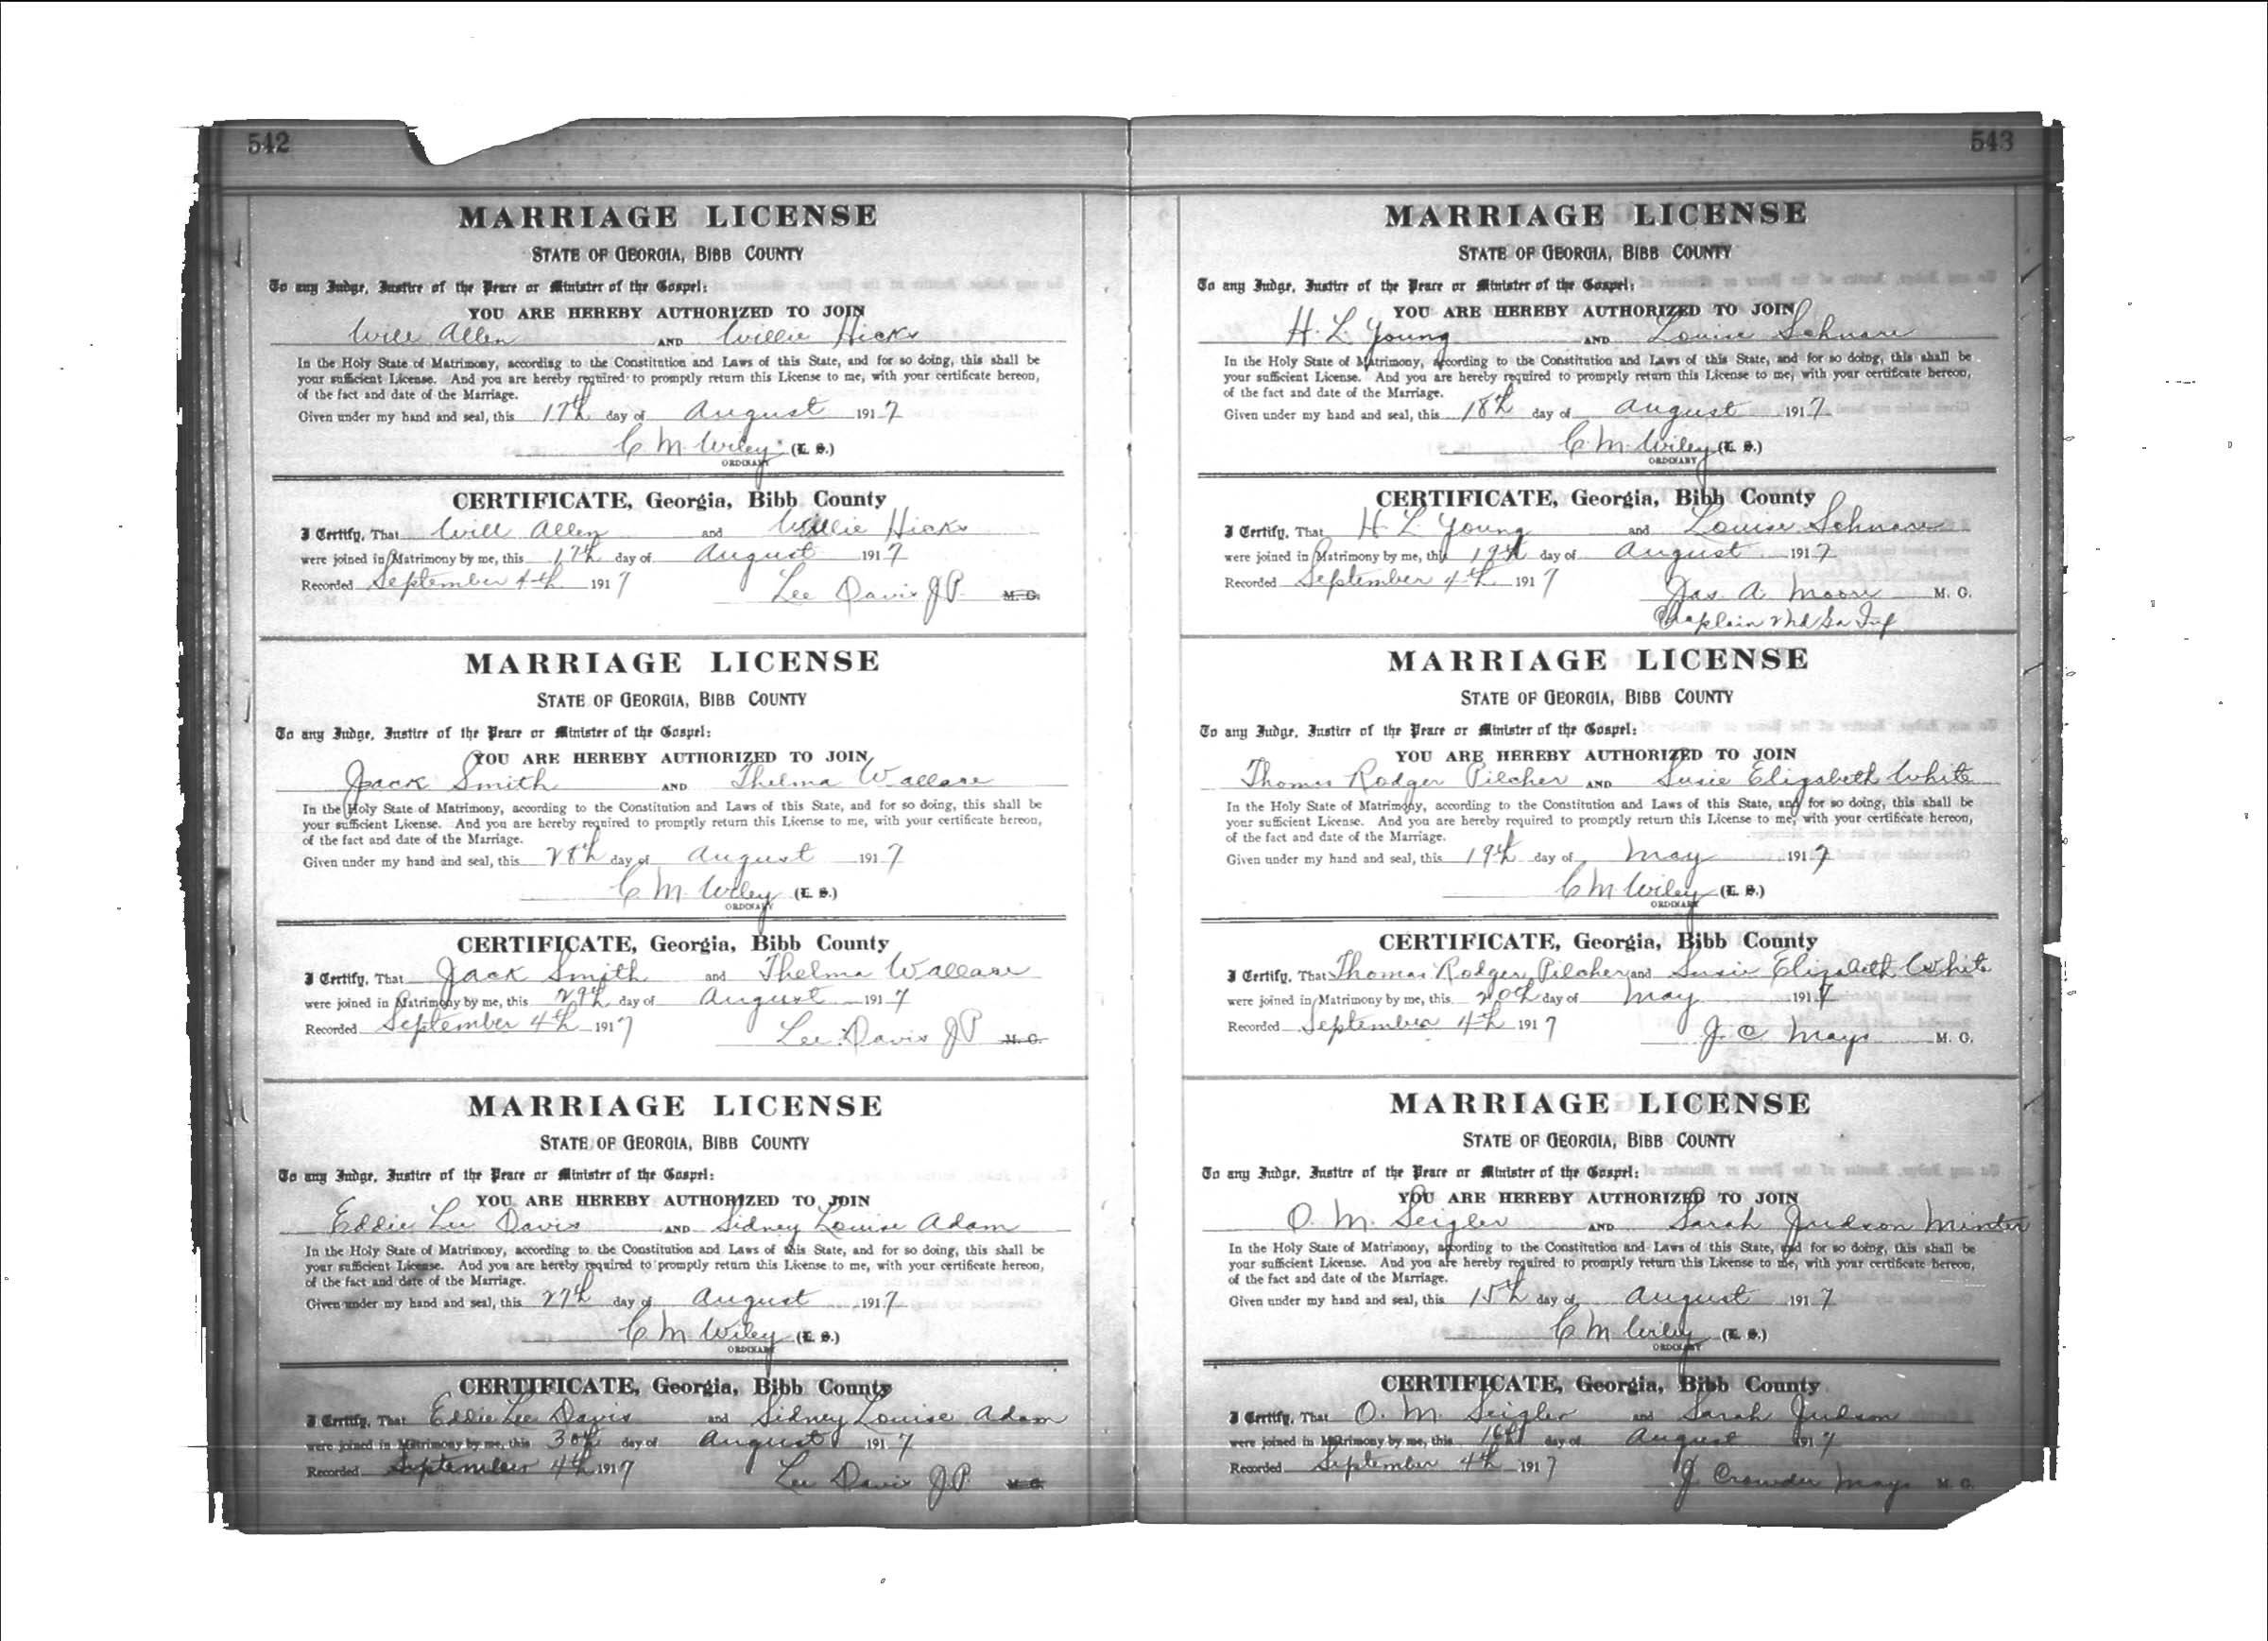 542
MARRIAGE LICENSE
STATE OF GEORGIA, BIBB COUNTY
To any Judge, Justice of the Peace or Minister of the Gospel:
YOU ARE HEREBY AUTHORIZED TO JOIN
Will Allen AND Willie Hicks
In the Holy State of Matrimony, according to the Constitution and Laws of this State, and for so doing, this shall be
your sufficient License. And you are hereby required to promptly return this License to me, with your certificate hereon,
of the fact and date of the Marriage.
Given under my hand and seal, this 17th day of August 1917
C M Wiley (L. S.)
ORDINARY
CERTIFICATE, Georgia, Bibb County
I Certify, That Will Allen and Willie Hicks
were joined in Matrimony by me, this 17th day of August 1917
Recorded September 4th 1917 Lee Davis J P. M. G.
MARRIAGE LICENSE
STATE OF GEORGIA, BIBB COUNTY
To any Judge, Justice of the Peace or Minister of the Gospel:
YOU ARE HEREBY AUTHORIZED TO JOIN
Jack Smith AND Thelma Wallace
In the Holy State of Matrimony, according to the Constitution and Laws of this State, and for so doing, this shall be
your sufficient License. And you are hereby required to promptly return this License to me, with your certificate hereon,
of the fact and date of the Marriage.
Given under my hand and seal, this 28th day of August 1917
C M Wiley (L. S.)
ORDINARY
CERTIFICATE, Georgia, Bibb County
I Certify, That Jack Smith and Thelma Wallace
were joined in Matrimony by me, this 29th day of August 1917
Recorded September 4th 1917 Lee Davis J P M. G.
MARRIAGE LICENSE
STATE OF GEORGIA, BIBB COUNTY
To any Judge, Justice of the Peace or Minister of the Gospel:
YOU ARE HEREBY AUTHORIZED TO JOIN
Eddie Lee Davis AND Sidney Louise Adam
In the Holy State of Matrimony, according to the Constitution and Laws of this State, and for so doing, this shall be
your sufficient License. And you are hereby required to promptly return this License to me, with your certificate hereon,
of the fact and date of the Marriage.
Given under my hand and seal, this 27th day of August 1917
C M Wiley (L. S.)
ORDINARY
CERTIFICATE, Georgia, Bibb County
I Certify, That Eddie Lee Davis and Sidney Louise Adam
were joined in Matrimony by me, this 30th day of August 1917
Recorded September 4th 1917 Lee Davis J P. M. G.
543
MARRIAGE LICENSE
STATE OF GEORGIA, BIBB COUNTY
To any Judge, Justice of the Peace or Minister of the Gospel:
YOU ARE HEREBY AUTHORIZED TO JOIN
H. L. Young AND Louise Schnare
In the Holy State of Matrimony, according to the Constitution and Laws of this State, and for so doing, this shall be
your sufficient License. And you are hereby required to promptly return this License to me, with your certificate hereon,
of the fact and date of the Marriage.
Given under my hand and seal, this 18th day of August 1917
C. M. Wiley (L. S.)
ORDINARY
CERTIFICATE, Georgia, Bibb County
I Certify, That H L Young and Louise Schnare
were joined in Matrimony by me, this 19th day of August 1917
Recorded September 4th 1917 Jas. A. Moore M. G.
Chaplain 2nd Ga Inf
MARRIAGE LICENSE
STATE OF GEORGIA, BIBB COUNTY
To any Judge, Justice of the Peace or Minister of the Gospel:
YOU ARE HEREBY AUTHORIZED TO JOIN
Thomas Rodger Pilcher AND Susie Elizabeth White
In the Holy State of Matrimony, according to the Constitution and Laws of this State, and for so doing, this shall be
your sufficient License. And you are hereby required to promptly return this License to me, with your certificate hereon,
of the fact and date of the Marriage.
Given under my hand and seal, this 19th day of May 1917
C M Wiley (L. S.)
ORDINARY
CERTIFICATE, Georgia, Bibb County
I Certify, That Thomas Rodger Pilcher and Susie Elizabeth White
were joined in Matrimony by me, this 20th day of May 1917
Recorded September 4th 1917 J. C Mays M. G.
MARRIAGE LICENSE
STATE OF GEORGIA, BIBB COUNTY
To any Judge, Justice of the Peace or Minister of the Gospel:
YOU ARE HEREBY AUTHORIZED TO JOIN
O. M. Seigler AND Sarah Judson Minter
In the Holy State of Matrimony, according to the Constitution and Laws of this State, and for so doing, this shall be
your sufficient License. And you are hereby required to promptly return this License to me, with your certificate hereon,
of the fact and date of the Marriage.
Given under my hand and seal, this 15th day of August 1917
C M Wiley (L. S.)
ORDINARY
CERTIFICATE, Georgia, Bibb County
I Certify, That O. M. Seigler and Sarah Judson
were joined in Matrimony by me, this 16th day of August 1917
Recorded September 4th 1917 J. Crowder Mays M. G.